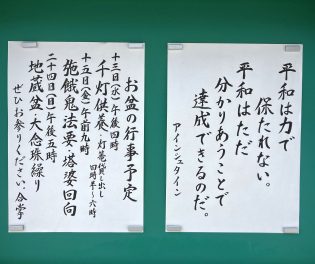 平和は力で
保たれない。
平和はただ
分かりあうことで
達成できるのだ。
アインシュタイン
お盆の行事予定
十三日(水)午後四時
千灯供養、灯篭貸し出し
四時半〜六時
十五日(金)午前九時
施餓鬼法要・塔婆回向
二十四日(日)午後五時
地蔵盆・大念珠繰り
ぜひお参りください。合掌